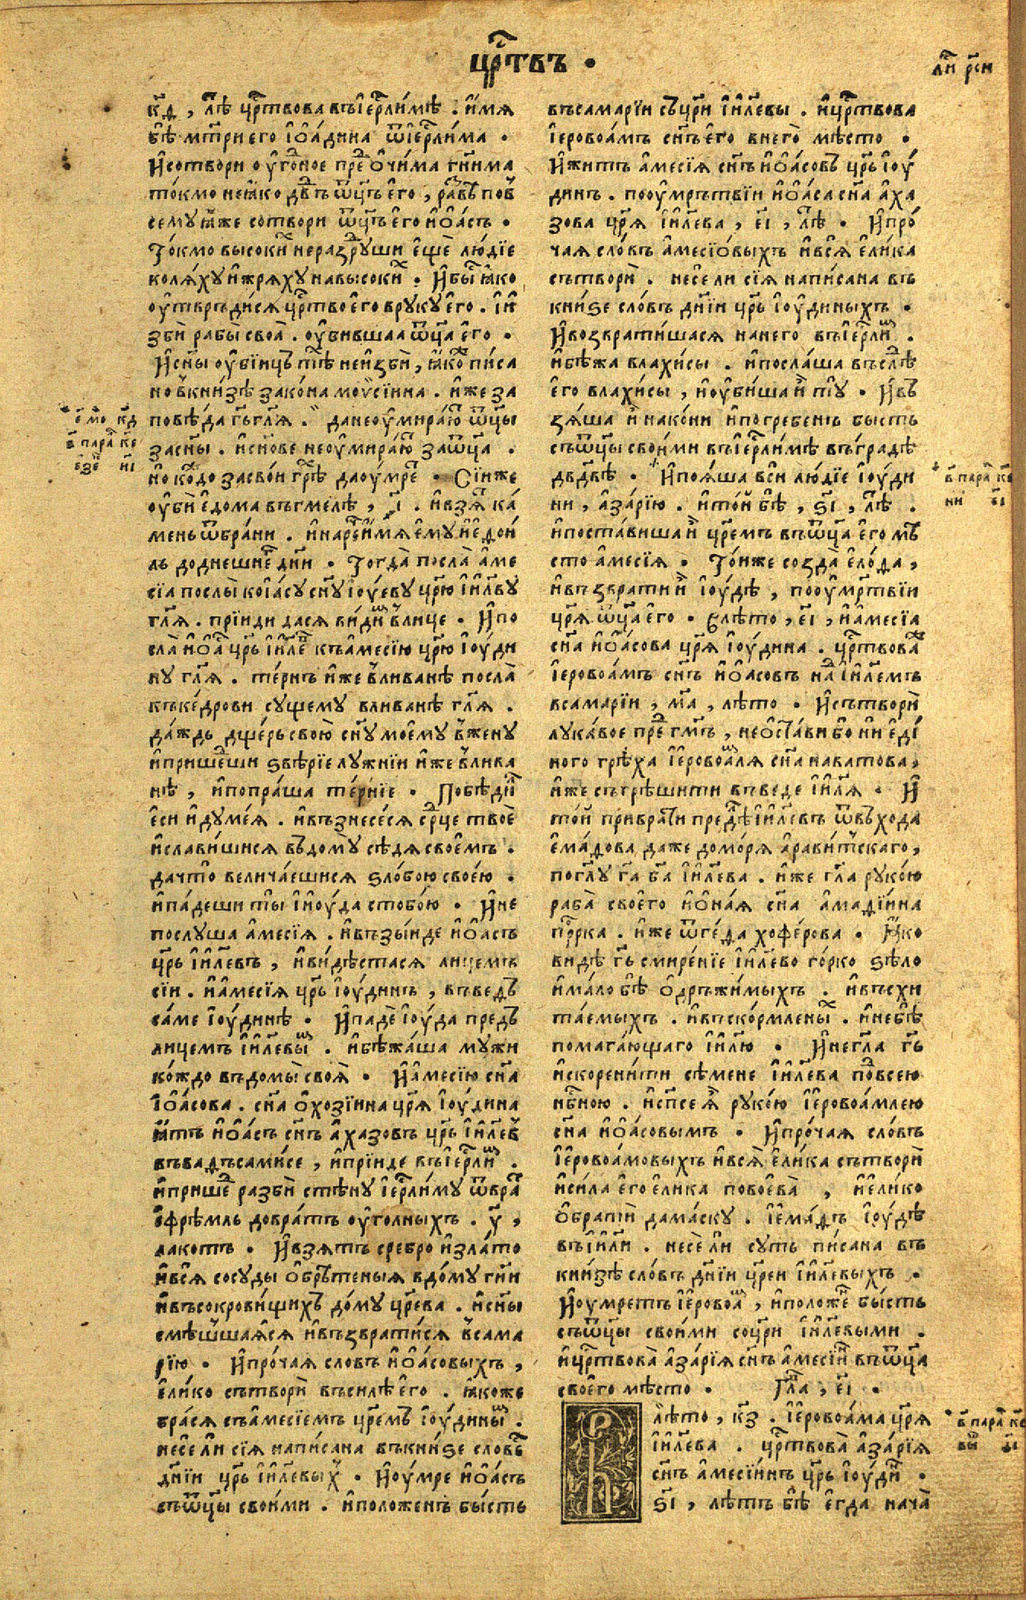 цр҃твъ ·
лѝ рсн
к҃д , лѣ цр҃твова въіерл҃имѣ . и́мя
бѣ мт҃ри его їѡ́адина ѿіерл҃има ·
И҆сотвори оу҆го́ное пре҆ ѻ҆чи́ма гн҃има
то́кмо неꙗ́ко дв҃дъ ѿц҃ъ е҆го̀ , ра́въ по в
сему̀ ꙗ҆́же сотвори ѿц҃ъ е҆го и҆ѻ҆а́съ ·
То́кмо высо́ки неразру́ши е҆ще лю́дїе
коля́ху и҆жря́ху навысо́ки · И҆бы́ ꙗ҆́ко
оу҆твръди́ся цр҃тво е҆го̀ вруку̀ е҆го . и҆и
зби рабы̀ своя̀ . оу҆би́вшаа ѿц҃а е҆го ·
И҆сн҃ы оу҆бїицъ тѣ неи҆зби , ꙗ҆́ко писа
но в҆кни́зѣ зако́на моѵсїи́на . и҆́же за
повѣ́да гь҃ гл҃я . данеоу҆мира́ю ѿц҃ы
засн҃ы . и҆сн҃ове неоу҆мира́ю заѿц҃а .
но кождо засво́и грѣ́ даоу҆мре · Сі́и же
оу҆би е҆до́ма въгме́лѣ , ҂і . и҆взя́ ка́
мень ѿбра́ни . и҆наре́ и҆́мя е҆му̀ и҆е҆дои
лъ доднешнѐ дн҃и · Тогда̀ посла̀ а҆ме
сі́а послы̀ коі҆а́су сн҃у і҆оу́еву цр҃ю і҆и҃лву
гл҃я . прїиди дася ви́ди в҆лице · И҆по
сла̀ и҆ѻ҆а́ цр҃ь і҆и҃ле къа҆месі́ю цр҃ю і҆оу́ди
ну гл҃я . те́рнъ и҆́же в҆лива́нѣ посла̀
къке́дрови су́щему вли́ванѣ гл҃я .
да́ждь дще́рь свою̀ сн҃у мое́му в҆жену
и҆прише́ши ѕвѣ́рїе лу́жнїи и҆́же в҆лива
нѣ , и҆попра́ша те́рнїе · Побѣди́
е҆си и҆думе́я . и҆възнесе́ся ср҃це твоѐ
и҆слави́шися въдо́му сѣ́дя свое́мъ .
да что̀ велича́ешися ѕло́бою своею̀ .
и҆па́деши ты̀ и҆ і҆оу́да стобо́ю · И҆не
послу́ша а҆месі́я . и҆възы́иде и҆ѻ҆а́съ
цр҃ь і҆и҃левъ , и҆видѣ́стася лице́мъ
сі́и . и҆а҆месі́я цр҃ь і҆оу́динъ , въ ведъ
са́ме і҆оу́динѣ · И҆падѐ і҆оу́да предъ
лице́мъ і҆и҃левы́ . и҆бѣжа́ша му́жи
ко́ждо въдомы̀ своя̀ · И҆а҆месі́ю сн҃а
і҆ѻ҆а́сова . сн҃а ѻ҆хозі́ина цр҃я і҆оу́дина
ꙗ҆́тъ и҆ѻ҆а́съ сн҃ъ а҆ха́зовъ цр҃ь і҆и҃лев
въвадъса́мисе , и҆прїиде въіерл҃и .
и҆прише разбѝ стѣну і҆ерл҃иму ѿвра
е҆фре́мль добра́тъ оу҆го́лныхъ . у҃ ,
лако́тъ · И҆взя́тъ сребро̀ и҆зла́то
и҆вся̀ сосу́ды ѻ҆брѣ́теныя вдо́му гн҃и
и҆въсокро́вищихъ до́му цр҃ева . и҆сн҃ы
смѣшшая́ся и҆възврати́ся в҆сама
рі́ю · И҆про́чая слове́ и҆ѻ҆а́совыхъ ,
е҆ли́ко сътворѝ въси́лѣ е҆го̀ . ꙗ҆́коже
бра́ся съа҆месі́емъ цр҃емъ і҆оу́дины .
несе́ ли сїя̀ напи́сана въкни́ѕе слове
дн҃їи цр҃ь і҆и҃левы · И҆оу҆мре и҆ѻ҆а́съ
съѿц҃ы свои́ми . и҆положе́нъ бы́сть
въсамарі́и сцр҃и і҆и҃левы . и҆цр҃твова
і҆еровоа́мъ сн҃ъ е҆го̀ внего̀ мѣ́сто ·
И҆жи́тъ а҆месі́я сн҃ъ и҆ѻ҆а́совъ цр҃ь і҆оу́
динъ . пооу҆мрътвїи и҆ѻ҆а́са сн҃а а҆ха
зова цр҃я і҆и҃лева , е҃і , лѣ · И҆про́
чая слове́ а҆месі́овыхъ и҆вся̀ е҆ли́ка
сътворѝ . несе́ ли сїя̀ напи́сана въ
кни́ѕе слове́ дн҃їи цр҃ь і҆оу́диныхъ ·
И҆возврати́шася нанего̀ въіерл҃и .
и҆бѣ́жа влахи́сы . и҆посла́ша въслѣ
е҆го влахи́сы , и҆оу҆би́ша и҆̀ ту · И҆въ
зя́ша и҆̀ нако́ни и҆погребе́нъ бы́сть
съѿц҃ы свои́ми въіерл҃имѣ въгра́дѣ
дв҃довѣ · И҆поя́ша вси лю́дїе і҆оу́ди
ни , а҆зарі́ю . и҆то́й бѣ , ѕ҃і , лѣ .
и҆поста́виша и҆̀ цр҃емъ въѿц҃а е҆го мѣ
сто а҆месі́я · То́иже созда̀ е҆ло́да ,
и҆възврати и҆̀ і҆оу́дѣ , пооу҆мр́твїи
цр҃я ѿц҃а е҆го · Влѣто , е҃і , и҆а҆месі́а
сн҃а и҆ѻ҆а́сова цр҃я і҆оу́дина . цр҃твова
і҆еровоа́мъ сн҃ъ и҆ѻ҆а́совъ на і҆и҃лемъ
всамарі́и , м҃а , лѣто · И҆сътворѝ
лука́вое пре гм҃ъ , неѡ҆ста́ви бо ни е҆ди́
ного грѣ́ха і҆еровоа́мля сн҃а нава́това ,
и҆́же съгрѣши́ти въведе і҆и҃ля · И҆
то́й приврати предѣ́ і҆и҃левъ ѿвъхо́да
е҆ма́дова даже домо́ря а҆рави́тскаго ,
по гл҃у га҃ ба҃ і҆и҃лева . и҆́же гл҃а руко́ю
раба̀ своего̀ и҆ѻ҆на́я сн҃а а҆мадї́ина
пр҃рка . и҆́же ѿге́да хофе́рова · Я҆́ко
видѣ̀ гь҃ смире́нїе і҆и҃лево го́рко ѕѣло
и҆ма́ло бѣ ѻ҆дръжи́мыхъ . и҆въсхи
та́емыхъ . и҆въско́рмлены . и҆небѣ̀
помага́ющаго і҆и҃лю · И҆негл҃а гь҃
и҆скорени́ти сѣ́мене і҆и҃лева по́всею
нб҃ною . и҆спсе я҆̀ руко́ю і҆еровоа́млею
сн҃а и҆ѻ҆а́совымъ · И҆про́чая слове́
і҆еровоа́мовыхъ и҆вся̀ е҆ли́ка сътворѝ
и҆си́ла е҆го е҆ли́ка повоева̀ , и҆е҆ли́ко
ѻ҆братѝ дама́ску . і҆ема́дъ і҆оу́дѣ
въі҆и҃ли . несе́ ли су́ть пи́сана въ
кни́зѣ слове́ дн҃їи цр҃еи і҆и҃левыхъ .
И҆оу҆мретъ і҆еровоа́ , и҆положе́ бы́сть
съѿц҃ы свои́ми соцр҃и і҆и҃левыми .
и҆цр҃твова̀ а҆за́рїя сн҃ъ а҆месі́и въѿц҃а
своего̀ мѣ́сто · Гл҃а , е҃і ·
В
лѣ́то , к҃з . і҆еровоа́ма цр҃я
і҆и҃лева . цр҃твова̀ а҆за́рїя
сн҃ъ а҆месі́инъ цр҃ь і҆оу́ди ·
ѕ҃і , лѣ́тъ бѣ̀ е҆гда нача̀
е҃ мо к҃д
в҃ пара к҃е
е҆зе н҃і
в҃ пара к҃ѕ
в҃ пара к҃ѕ